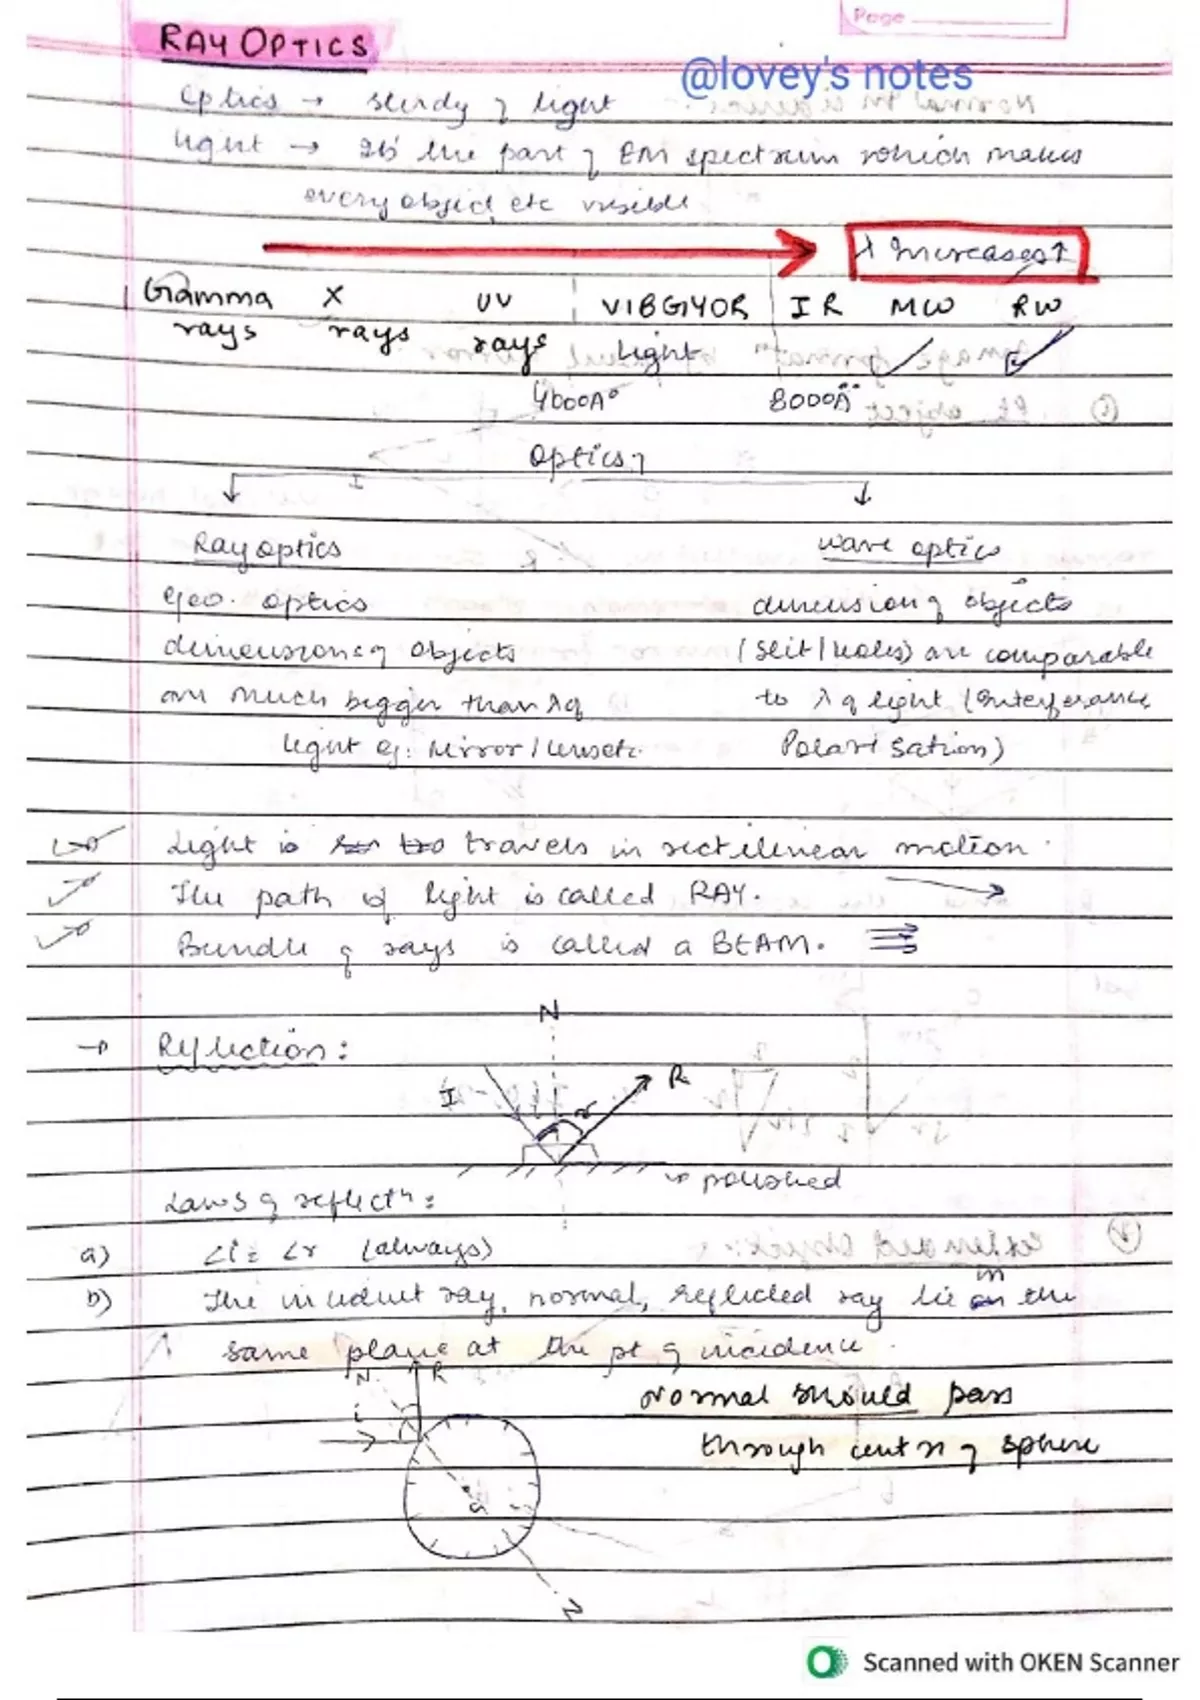 Page
RAY OPTICS
@lovey's notes
Optics → study of light
light → Its the part of EM spectrum which makes
every object etc visible
λ Increases ↑
Gamma rays X rays UV rays VIBGYOR light IR MW RW
4000A° 8000A°
Optics
Ray optics wave optics
Geo. optics dimension of objects
dimensions of objects (slit/holes) are comparable
are much bigger than λ of to λ of light (Interferance
light eg: Mirror/lens etc. Polarisation)
Light is travels in rectilinear motion.
The path of light is called RAY.
Bundle of rays is called a BEAM.
→ Reflection:
N
I r R
→ polished
Laws of reflectⁿ:
a) ∠i = ∠r (always)
b) The incident ray, normal, reflected ray lie in the
same plane at the pt of incidence.
N R
i r
Normal should pass
through centre of sphere
C
N
Scanned with OKEN Scanner